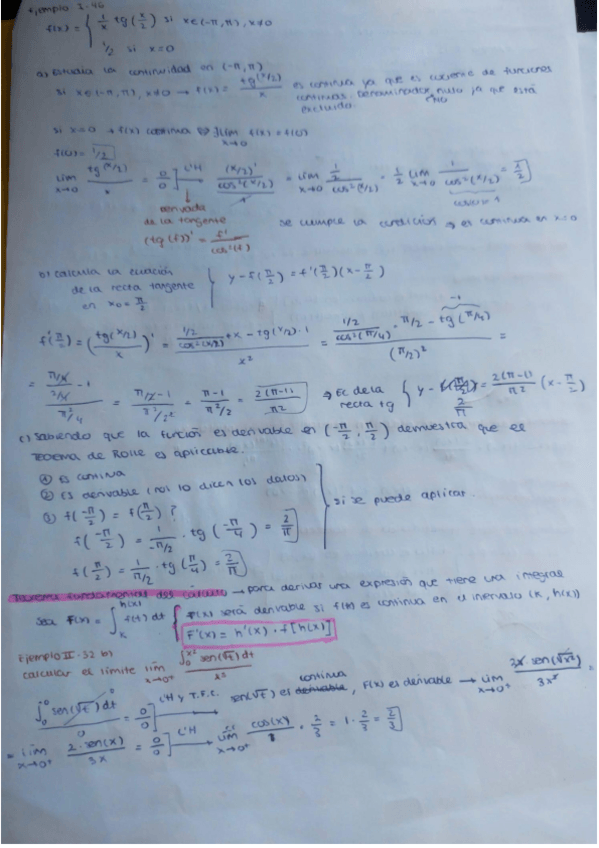 Ejemplo 2.46
f(x) = { 1/x tg(x/2) si x∈(-π,π), x≠0
1/2 si x=0
a) Estudia la continuidad en (-π,π)
si x∈(-π,π), x≠0 → f(x) = tg(x/2)/x es continua ya que es cociente de funciones
continuas. Denominador no nulo ya que está
excluido.
si x=0 → f(x) continua ⇔ ∃ lim x→0 f(x) = f(0)
f(0) = 1/2
lim x→0 tg(x/2)/x = 0/0 L'H → (x/2)'/cos²(x/2) / 1 = lim x→0 1/2/cos²(x/2) = 1/2 lim x→0 1/cos²(x/2) = 1/2
cos 0 = 1
derivada
de la tangente
(tg(f))' = f'/cos²(f)
se cumple la condición → es continua en x=0
b) Calcula la ecuación
de la recta tangente
en x₀ = π/2
{ y - f(π/2) = f'(π/2)(x - π/2)
f'(π/2) = (tg(x/2)/x)' = (1/2/cos²(x/2) · x - tg(x/2) · 1)/x² = (1/2/cos²(π/4) · π/2 - tg(π/4))/(π/2)² =
= = = (π-1)/π²/2 = 2(π-1)/π² → Ec de la
recta tg { y - 2/π = 2(π-1)/π² (x - π/2)
c) Sabiendo que la función es derivable en (-π/2, π/2) demuestra que el
Teorema de Rolle es aplicable.
① Es continua
② Es derivable (nos lo dicen los datos)
③ f(-π/2) = f(π/2) ?
f(-π/2) = 1/-π/2 · tg(-π/4) = 2/π
f(π/2) = 1/π/2 · tg(π/4) = 2/π
} si se puede aplicar
Teorema fundamental del cálculo → para derivar una expresión que tiene una integral
Sea F(x) = ∫ₖ^h(x) f(t) dt { F(x) será derivable si f(x) es continua en el intervalo (k, h(x))
F'(x) = h'(x) · f[h(x)]
Ejemplo II.32 b)
calcular el límite lim x→0⁺ ∫₀^x² sen(√t) dt / x³
∫₀⁰ sen(√t) dt / 0 = 0/0 L'H y T.F.C. → sen(√t) es continua, F(x) es derivable → lim x→0⁺ 2x · sen(√x²)/3x² =
= lim x→0⁺ 2 · sen(x)/3x = 0/0 L'H → lim x→0⁺ cos(x)/1 · 2/3 = 1 · 2/3 = 2/3